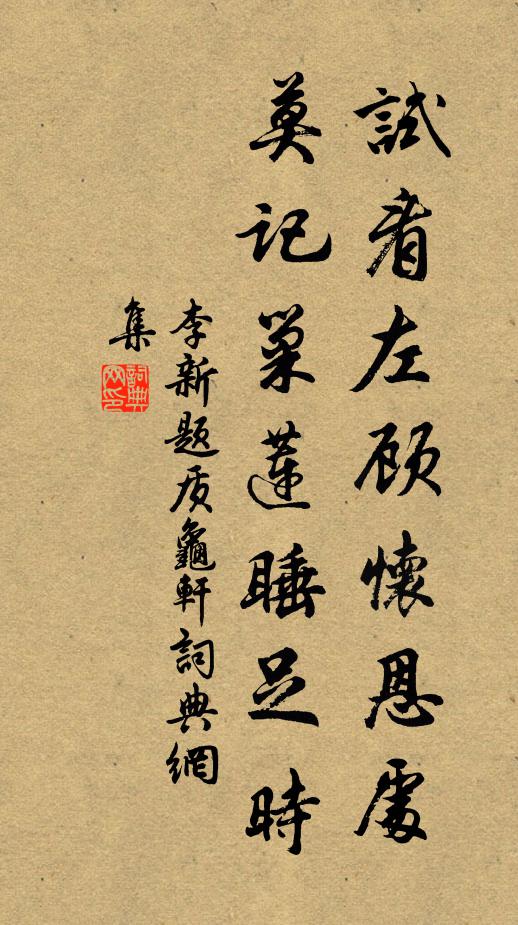 試看左顧懷恩處
莫記巢蓮睡足時
李新題质龜軒詞典網
集
詞典网印